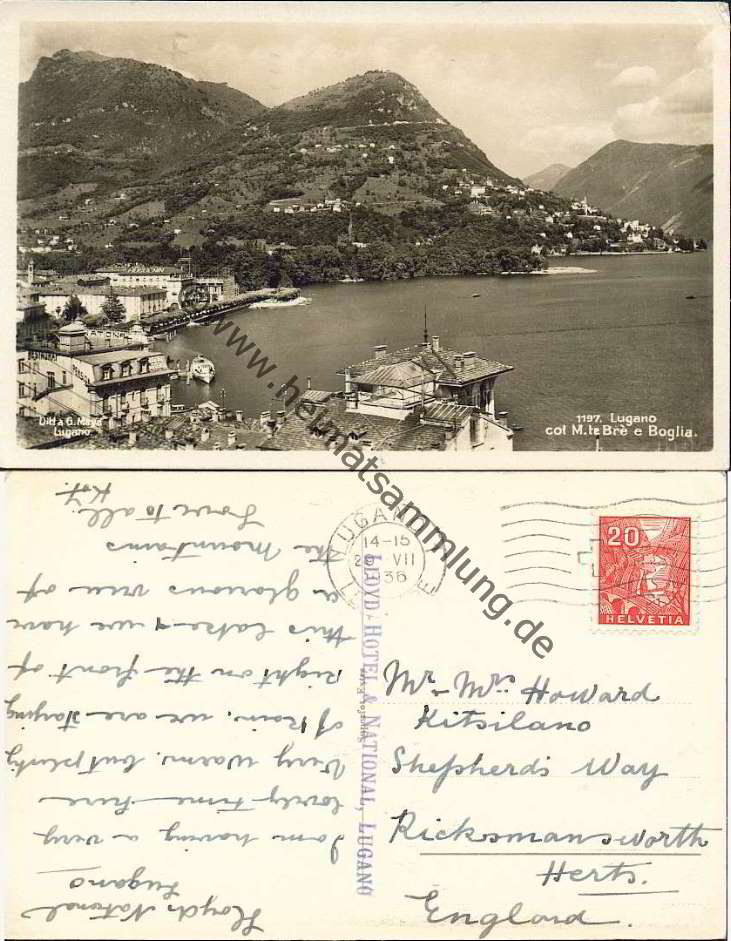 NATIONAL
Ditta G. Mayr
Lugano
1197. Lugano
col M. te Brè e Boglia.
www.heimatsammlung.de
LUGANO
14-15
29 VII
36
20
HELVETIA
LLOYD-HOTEL & NATIONAL, LUGANO
Mr & Mrs Howard
Kitsilano
Shepherds Way
Ricksmansworth
Herts.
England.
Lloyds National
Lugano
I am having a very
lovely time here
Very warm, but plenty
of Rain. we are staying
Right on the front of
this lake & we have
a glorious view of
the mountains
Love to all.